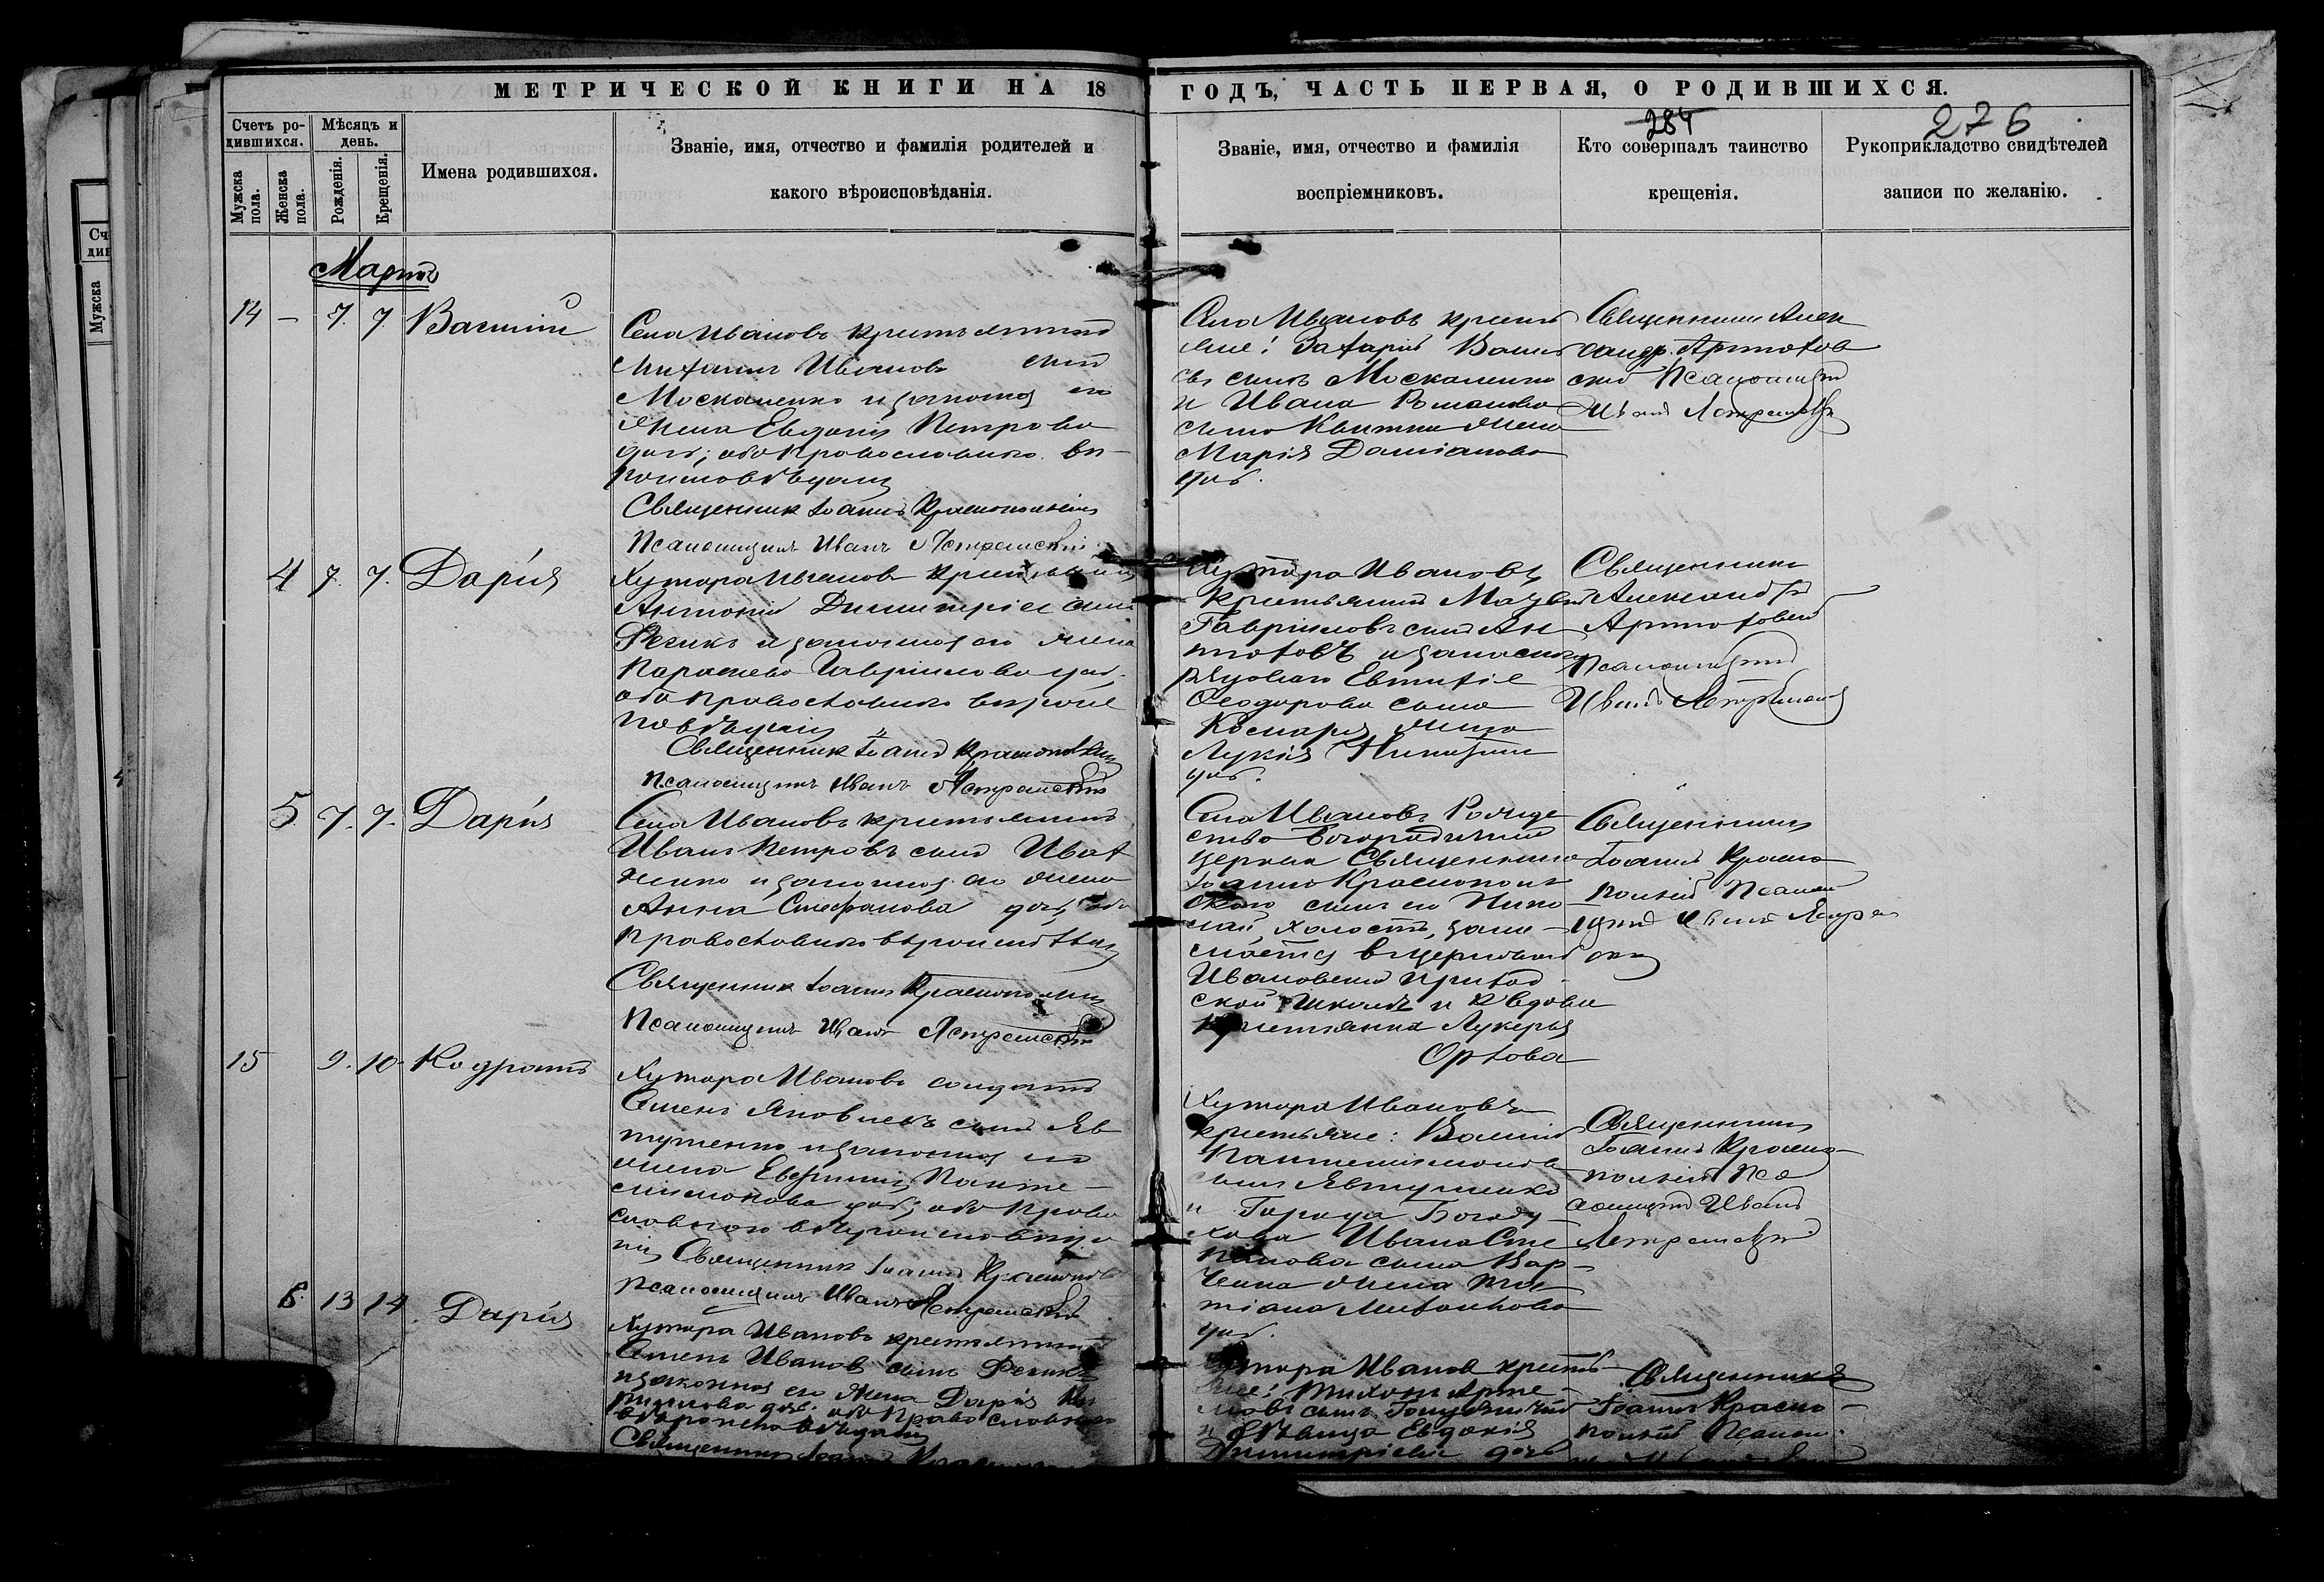 МЕТРИЧЕСКОЙ КНИГИ НА 18 ГОДЪ, ЧАСТЬ ПЕРВАЯ, О РОДИВШИХСЯ.
284
276
Счетъ родившихся.
Мужска пола.
Женска пола.
Мѣсяцъ и день.
Рожденія.
Крещенія.
Имена родившихся.
Званіе, имя, отчество и фамилія родителей и
какого вѣроисповѣданія.
Званіе, имя, отчество и фамилія
воспріемниковъ.
Кто совершалъ таинство
крещенія.
Рукоприкладство свидѣтелей
записи по желанію.
Мартъ
14 – 7. 7. Василій
Села Ивановъ крестьянинъ
Михаилъ Ивановъ сынъ
Москаленко и законная его
жена Евдокія Петрова
дочь; оба православнаго вѣ-
роисповѣданія
Священникъ Іоаннъ Краснопольскій
Псаломщикъ Иванъ Ястремскій
Села Ивановъ крестья
яне: Захарій Васильев
въ сынъ Москаленко
и Ивана Романова
сына Квитки жена
Марія Даміанова
дочь.
Священникъ Алек
сандръ Артюхов
скій Псаломщикъ
Иванъ Ястремскій
4 7. 7. Дарія
Хутора Иванова крестьянинъ
Антоній Димитріев сынъ
и законная его жена
Параскева Гавриилова дочь,
оба православнаго вѣроис
повѣданія
Священникъ Іоаннъ Краснопольскій
Псаломщикъ Иванъ Ястремскій
Хутора Ивановъ
крестьянинъ
Гавріиловъ сынъ Ар
тюховъ и запаснаго
рядоваго Евтихіе
Феодорова сына
жена
Лукія
дочь.
Священникъ
Александръ
Артюховскій
Псаломщикъ
Иванъ Ястремскій
5. 7. 7. Дарія
Села Ивановъ крестьянинъ
Иванъ Петровъ сынъ Ивах
ненко и законная его жена
Анна Стефанова дочь, оба
православнаго вѣроисповѣданія
Священникъ Іоаннъ Краснопольскій
Псаломщикъ Иванъ Ястремскій
Села Ивановъ Рожде
ство Богородичной
церкви Священника
Іоанна Краснополь
скаго сынъ его Нико
лай, холостъ, зани-
мается в церковно
Ивановской приход
ской школѣ и вдова
крестьянка Лукерья
Орлова
Священникъ
Іоаннъ Красно
польскій Псалом
щикъ Иванъ Ястрем
скій
15 9. 10. Кодратъ
Хутора Ивановъ солдатъ
Семенъ Яковлевъ сынъ Яв
тушенко и законная его
жена Евфимія Панте-
леимонова дочь, оба право
славнаго вѣроисповѣда
нія Священникъ Іоаннъ Краснопольскій
Псаломщикъ Иванъ Ястремскій
Хутора Ивановъ
крестьяне: Василій
Пантелеимоновъ
сынъ Явтушенко
и Города Богоду
хова Ивана Сте
панова сына Вар-
жена Тат
тіана Михайлова
дочь.
Священникъ
Іоаннъ Красно-
польскій Пса
ломщикъ Иванъ
Ястремскій
6. 13 14. Дарія
Хутора Ивановъ крестьянинъ
Семенъ Иванов сынъ
и законная его жена Дарія
дочь. оба православнаго
вѣроисповѣданія
Священникъ Іоаннъ
Хутора Ивановъ кресть
яне: Тихонъ Арте-
мовъ сынъ
и дѣвица Евдокія
Димитріева дочь
Священникъ
Іоаннъ Красно-
польскій Псалом.